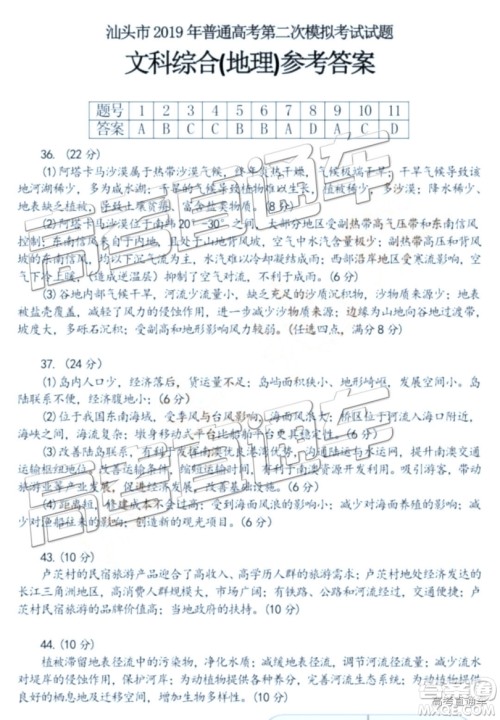 汕头市 2019 年普通高考第二次模拟考试试题
文科综合(地理)参考答案
题号 1 2 3 4 5 6 7 8 9 10 11
答案 A B C C B B A D A C D
36. (22 分)
(1) 阿塔卡马沙漠属于热带沙漠气候，终年炎热干燥，气候极端干旱；干旱气候导致该
地河湖稀少，多大漠荒漠；干旱的气候导致水分难以满足生长，植被稀少，多沙漠；降水稀
少，地表缺乏植被，蒸发旺盛，富含盐类物质。(8 分)
(2)阿塔卡马沙漠位于南纬 20°-30°之间，大部分地区受副热带高气压带和东南信风
控制；东南信风来自于内地，且处于山地背风坡，空气中水汽含量极少；副热带高压和
东南信风，均以下沉气流为主，水汽难以冷却凝结成雨；西部沿岸地区受寒流影响，空气
下冷上暖，(造成逆温层) 抑制了空气对流，不利于成雨。(6 分)
(3)谷地内部气候干旱，河流少流量小，缺乏充足的沙质沉积物，沙物质来源少；地表
被盐壳覆盖，减轻了风力的侵蚀作用，减少沙物质来源；边缘为山地与山前冲积扇，
坡度大，多砾石沉积；受副高和地形影响风力较弱。(任选四点，满分 8 分)
37. (24 分)
(1)岛内人口少，经济落后，货运量不足；岛内多山地，易发地质灾害，发展空间小。岛
陆联系不便，使用效率低。(6 分)
(2)位于我国东南海域，受季风与台风影响大，海域风浪大；桥区位于河流入海口附近，
海峡之间，海流复杂；墩身移动式平台比船舶平台更具有稳定性。(6 分)
(3)改善陆岛交通联系，有利于发挥南澳优良港湾优势，沟通陆运与水运，改善南澳交通
运输枢纽地位；增强与大陆的经济联系，提高运输能力，扩大市场。吸引游客，带动旅游
业等产业发展，促进产业升级，增加就业，提高经济效益。(6 分)
(4)距离短，工程量小，减少建设成本；减少对海洋生态的影响；减少对海面养殖的影响；
减少对渔船航行的影响；创造新的观光项目。(6 分)
43. (10 分)
卢茨村的民宿旅游产品迎合了高收入、高学历人群的旅游需求；卢茨村地处经济发达的
长江三角洲地区，中高端消费人群规模大；有铁路、公路和河流流经，交通便利；卢茨村
旅游的品牌价值高；当地政府的扶持。(10 分)
44. (10 分)
植被滞留地表径流中的污染物，净化水质；减缓地表径流流速，调节河流径流量，减轻
洪涝灾害；保护河岸，减轻流水的侵蚀作用，减少水土流失；给大量水生动植物提供
良好的栖息地，增加生物多样性。(10 分)
高考直通车
高考直通车
高考直通车